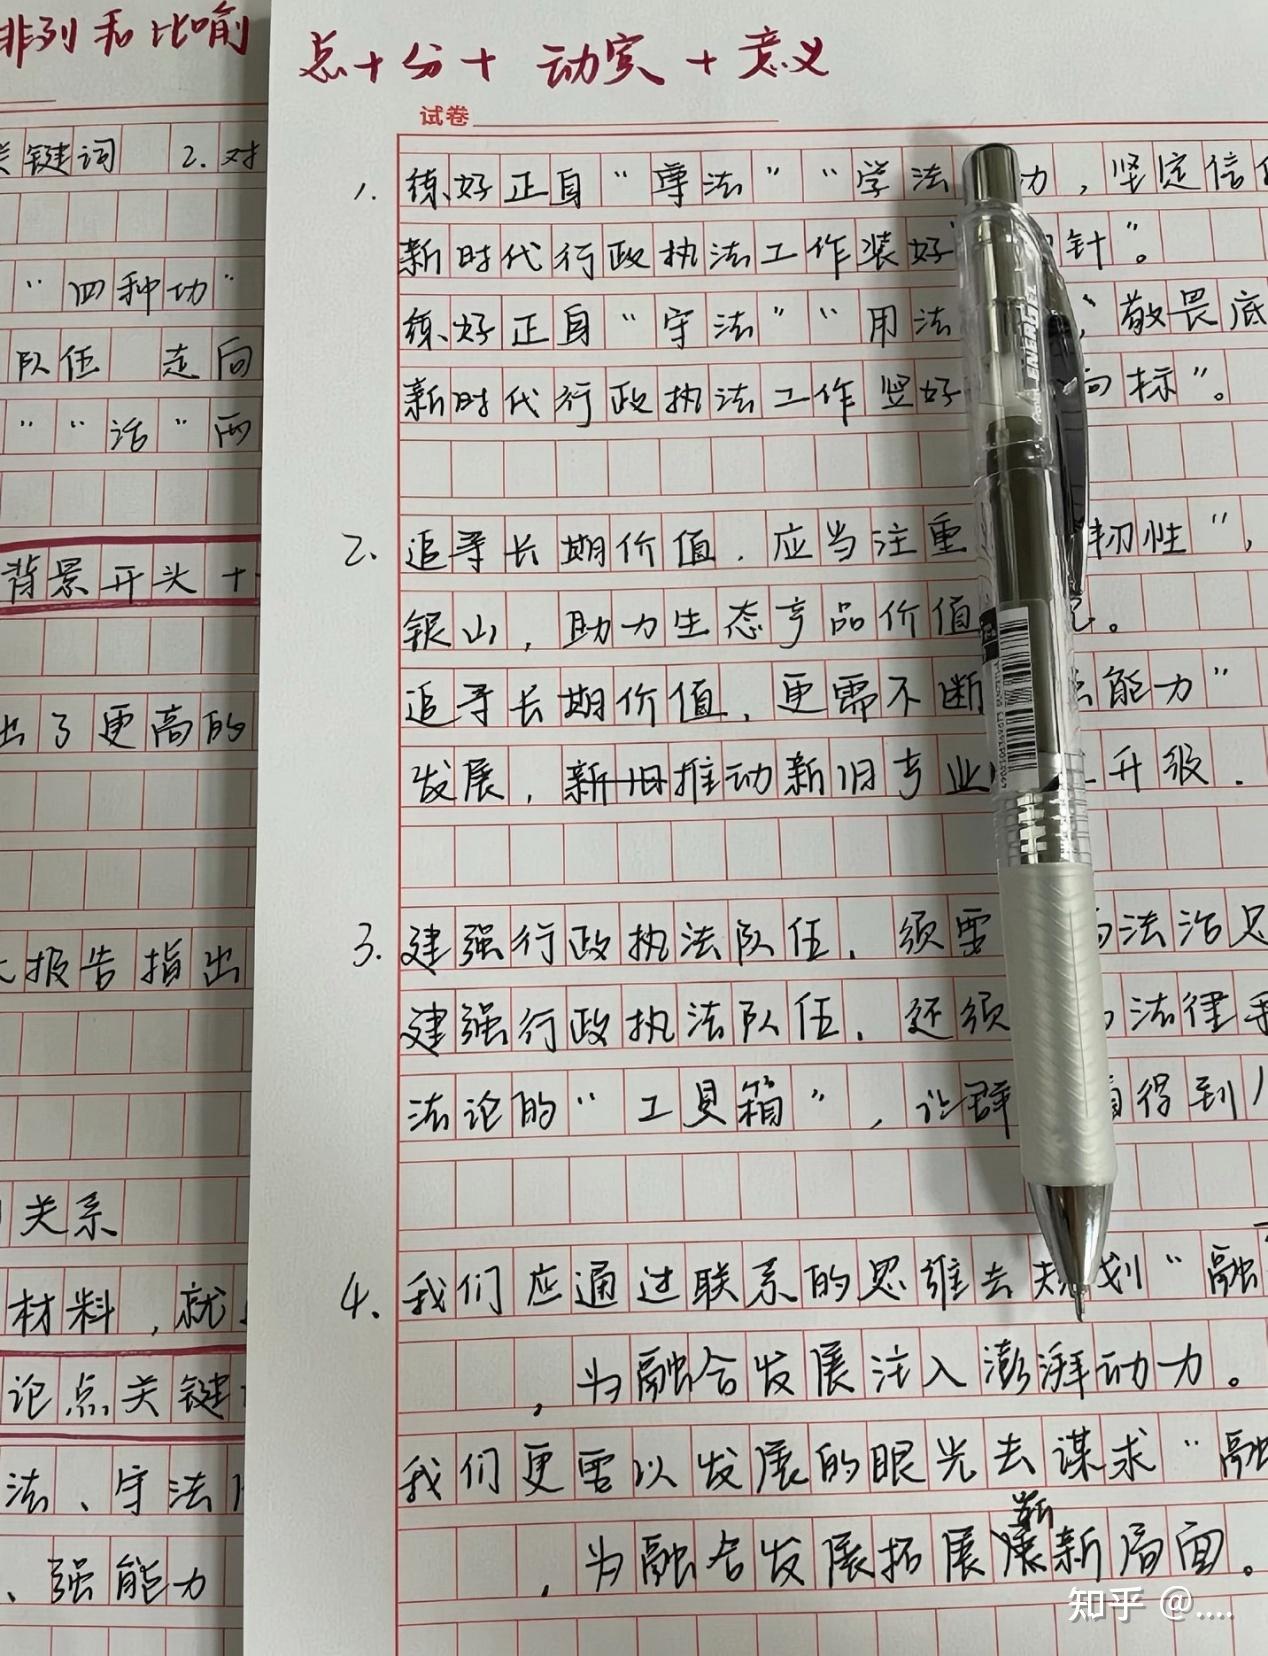 排列和比喻
关键词 2. 对
“四种功”
队伍 走向
“ “活” 两
背景开头 +
出了更高的
报告指出
关系
材料，就
论点关键
法、守法
、强能力
总+分+ 动宾 +意义
试卷
1. 练好正身“尊法”“学法 功，坚定信
新时代行政执法工作装好“ 针”。
练好正身“守法”“用法 ，敬畏底
新时代行政执法工作竖好 向标”。
2. 追寻长期价值，应当注重 韧性”，
银山，助力生态产品价值 。
追寻长期价值，更需不断 能力”
发展，新旧推动新旧专业 升级．
3. 建强行政执法队伍，须要 法治思
建强行政执法队伍，还须 法律
法论的“工具箱”，让群 得到
4. 我们应通过联系的思维去规划“融
，为融合发展注入澎湃动力。
我们更要以发展的眼光去谋求“融
，为融合发展拓展崭新局面。
知乎 @....
ENERGEL